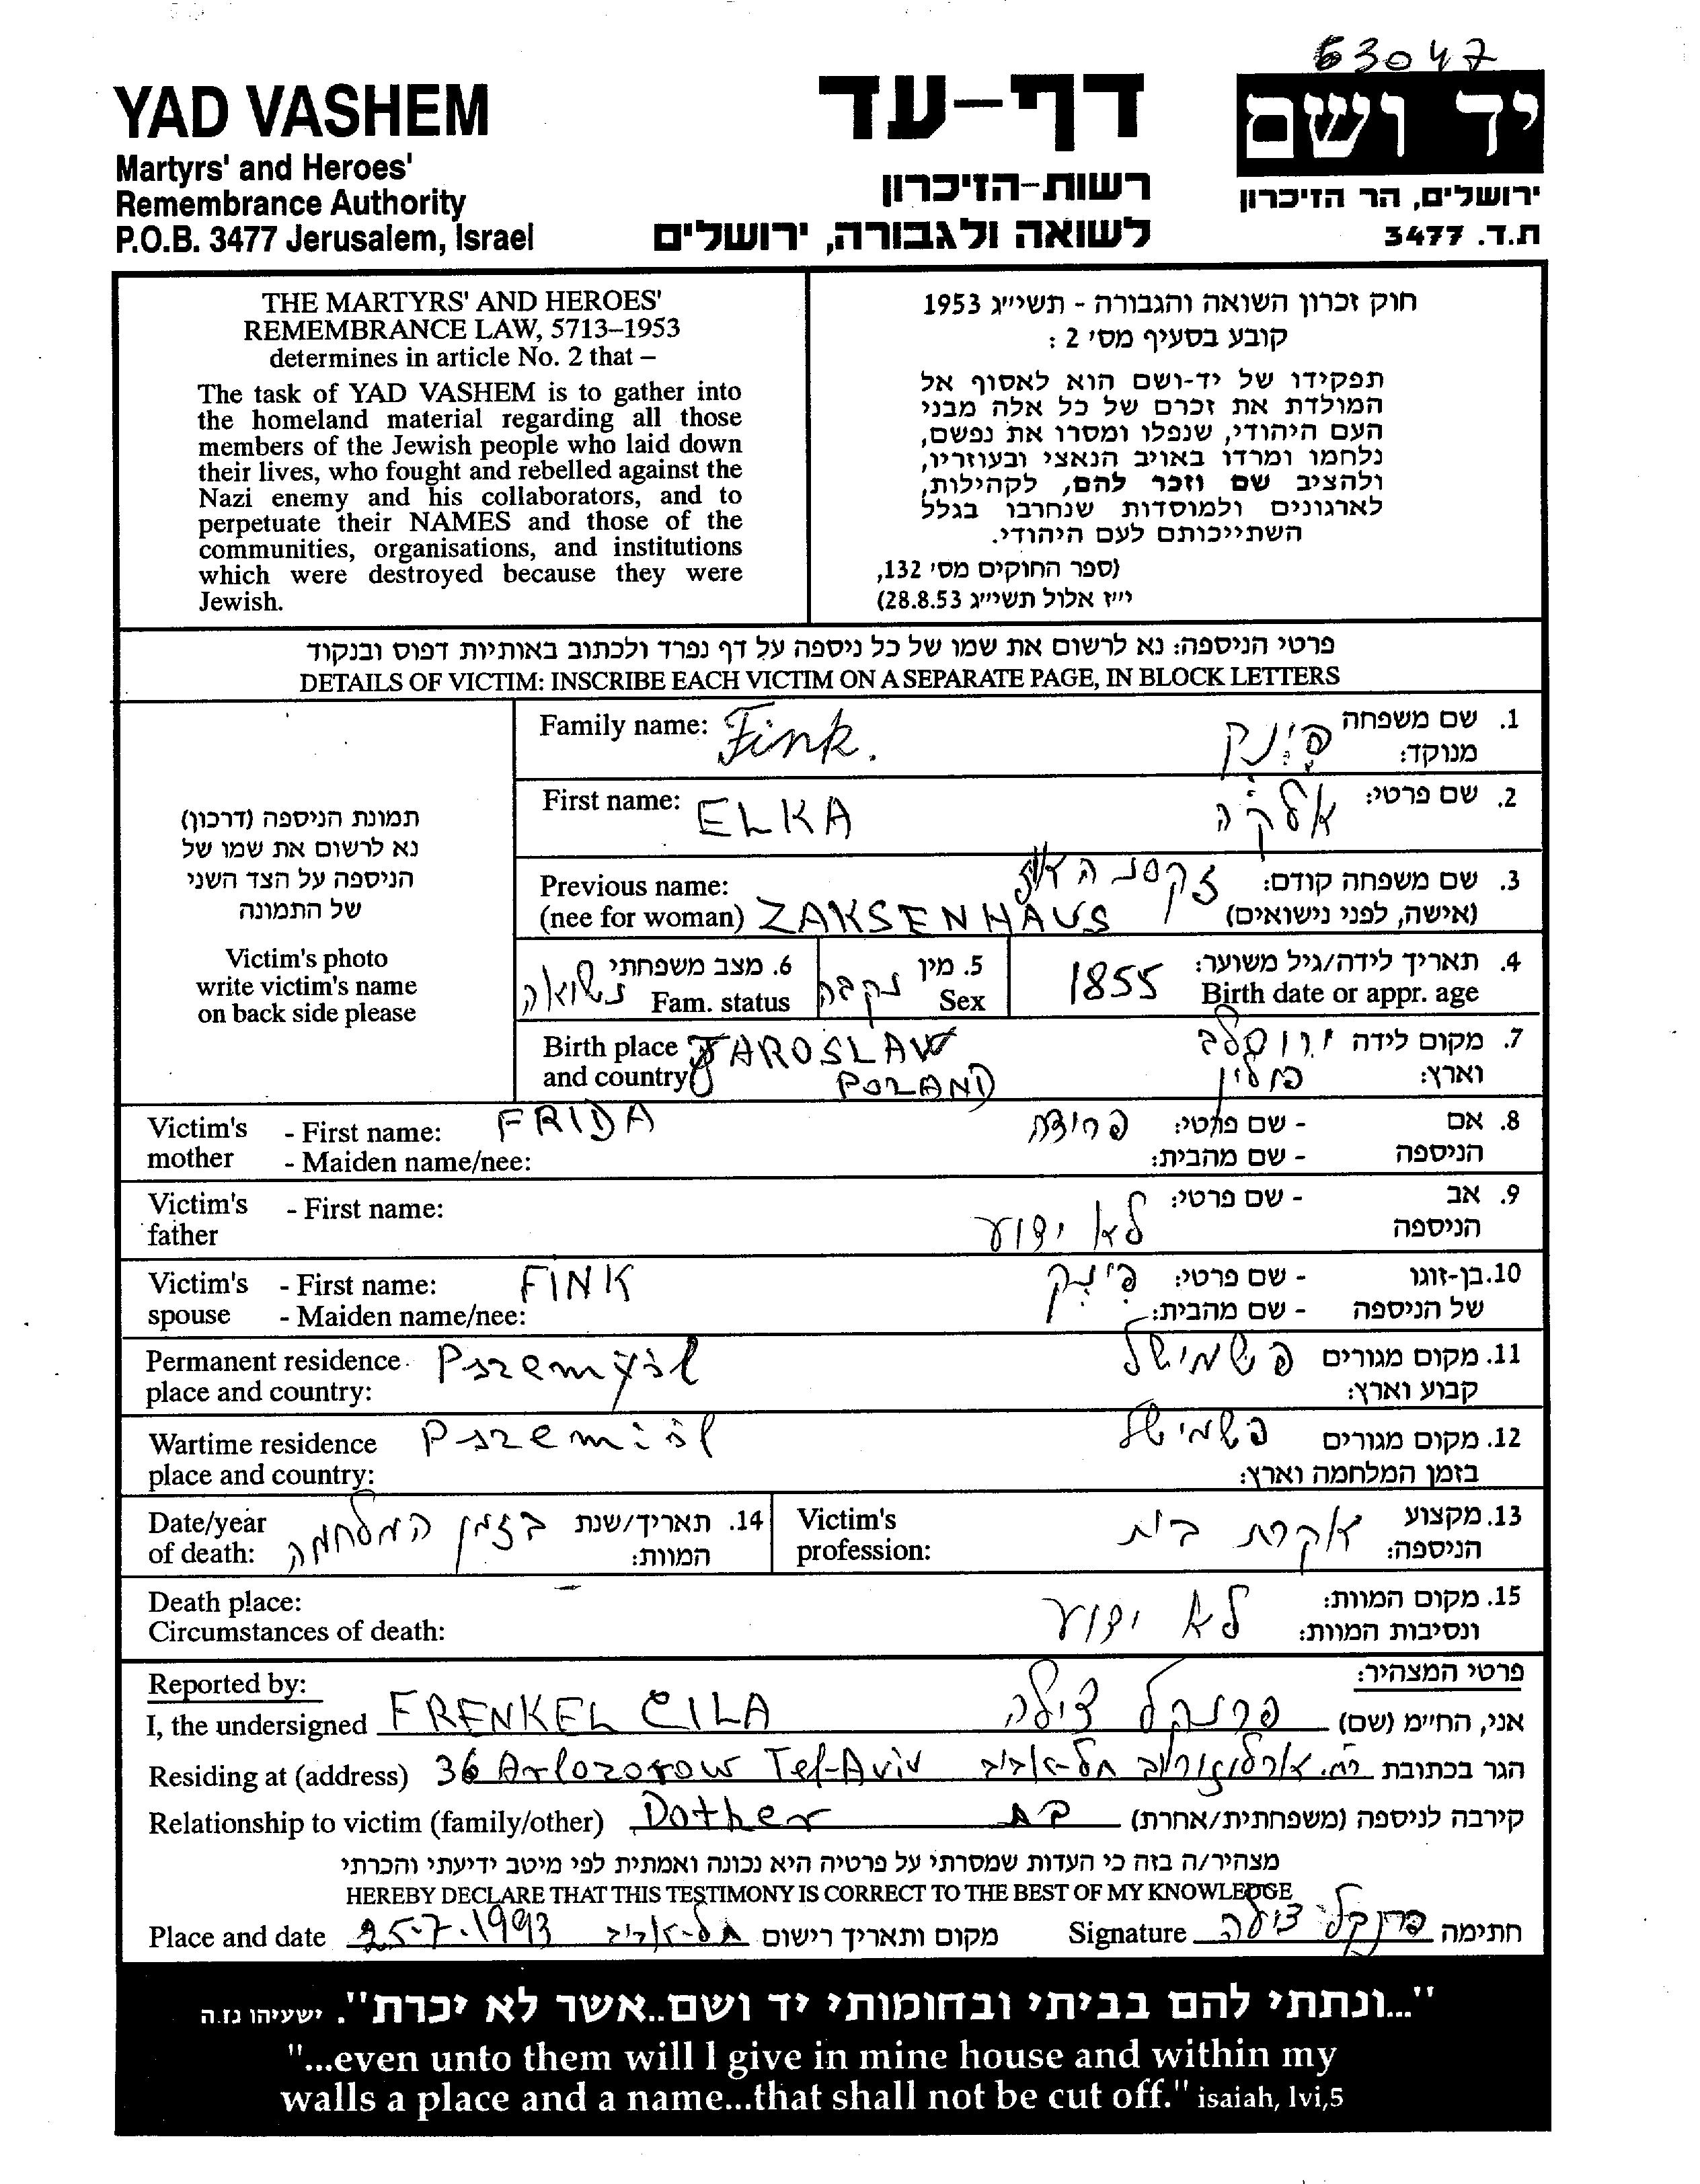 63047
YAD VASHEM
Martyrs' and Heroes'
Remembrance Authority
P.O.B. 3477 Jerusalem, Israel
דף-עד
רשות-הזיכרון
לשואה ולגבורה, ירושלים
יד ושם
ירושלים, הר הזיכרון
ת.ד. 3477
THE MARTYRS' AND HEROES'
REMEMBRANCE LAW, 5713–1953
determines in article No. 2 that –
The task of YAD VASHEM is to gather into
the homeland material regarding all those
members of the Jewish people who laid down
their lives, who fought and rebelled against the
Nazi enemy and his collaborators, and to
perpetuate their NAMES and those of the
communities, organisations, and institutions
which were destroyed because they were
Jewish.
חוק זכרון השואה והגבורה - תשי״ג 1953
קובע בסעיף מס׳ 2 :
תפקידו של יד-ושם הוא לאסוף אל
המולדת את זכרם של כל אלה מבני
העם היהודי, שנפלו ומסרו את נפשם,
נלחמו ומרדו באויב הנאצי ובעוזריו,
ולהציב שם וזכר להם, לקהילות,
לארגונים ולמוסדות שנחרבו בגלל
השתייכותם לעם היהודי.
(ספר החוקים מס׳ 132,
י״ז אלול תשי״ג 28.8.53)
פרטי הניספה: נא לרשום את שמו של כל ניספה על דף נפרד ולכתוב באותיות דפוס ובנקוד
DETAILS OF VICTIM: INSCRIBE EACH VICTIM ON A SEPARATE PAGE, IN BLOCK LETTERS
תמונת הניספה (דרכון)
נא לרשום את שמו של
הניספה על הצד השני
של התמונה
Victim's photo
write victim's name
on back side please
Family name: Fink. פינק 1. שם משפחה
מנוקד:
First name: ELKA אלקה 2. שם פרטי:
Previous name: זקסנהאוז 3. שם משפחה קודם:
(nee for woman) ZAKSENHAUS (אישה, לפני נישואים)
נשואה 6. מצב משפחתי נקבה 5. מין 1855 4. תאריך לידה/גיל משוער:
Fam. status Sex Birth date or appr. age
Birth place JAROSLAW ירוסלב 7. מקום לידה
and country POLAND פולין וארץ:
Victim's - First name: FRIDA פרידה - שם פרטי: 8. אם
mother - Maiden name/nee: - שם מהבית: הניספה
Victim's - First name: לא ידוע - שם פרטי: 9. אב
father הניספה
Victim's - First name: FINK פינק - שם פרטי: 10. בן-זוגו
spouse - Maiden name/nee: - שם מהבית: של הניספה
Permanent residence Pszemyśl פשמישל 11. מקום מגורים
place and country: קבוע וארץ:
Wartime residence Pszemiśl פשמישל 12. מקום מגורים
place and country: בזמן המלחמה וארץ:
Date/year בזמן המלחמה 14. תאריך/שנת Victim's עקרת בית 13. מקצוע
of death: המוות: profession: הניספה:
Death place: לא ידוע 15. מקום המוות:
Circumstances of death: ונסיבות המוות:
Reported by: פרטי המצהיר:
I, the undersigned FRENKEL CILA פרנקל צילה אני, החי״מ (שם)
Residing at (address) 36 Arlozorow Tel-Aviv ארלוזורוב תל-אביב הגר בכתובת
Relationship to victim (family/other) Dother בת קירבה לניספה (משפחתית/אחרת)
מצהיר/ה בזה כי העדות שמסרתי על פרטיה היא נכונה ואמתית לפי מיטב ידיעתי והכרתי
HEREBY DECLARE THAT THIS TESTIMONY IS CORRECT TO THE BEST OF MY KNOWLEDGE
Place and date 25-7-1993 תל-אביב מקום ותאריך רישום Signature פרנקל צילה חתימה
"...ונתתי להם בביתי ובחומותי יד ושם..אשר לא יכרת". ישעיהו נז.ה
"...even unto them will I give in mine house and within my
walls a place and a name...that shall not be cut off." isaiah, lvi,5